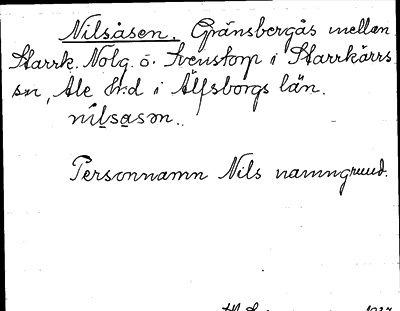 Nilsåsen. Gränsbergås mellan
Starrk. Nolg. o. Svenstorp i Starrkärrs
sn, Ale hrd i Älfsborgs län.
nilsåsən.
Personnamn Nils namngrund.